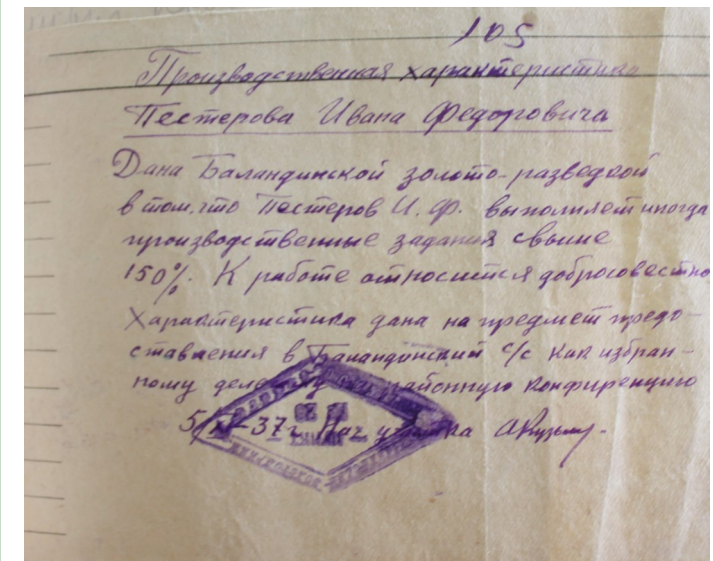 105
Производственная характеристика
Пестерова Ивана Федоровича
Дана Баландинской золото-разведкой
в том, что Пестеров И. Ф. выполняет иногда
производственные задания свыше
150%. К работе относится добросовестно
Характеристика дана на предмет предо-
ставления в Баландинский с/с как избран-
ному на районную конфиренцию
37 г. Нач участка